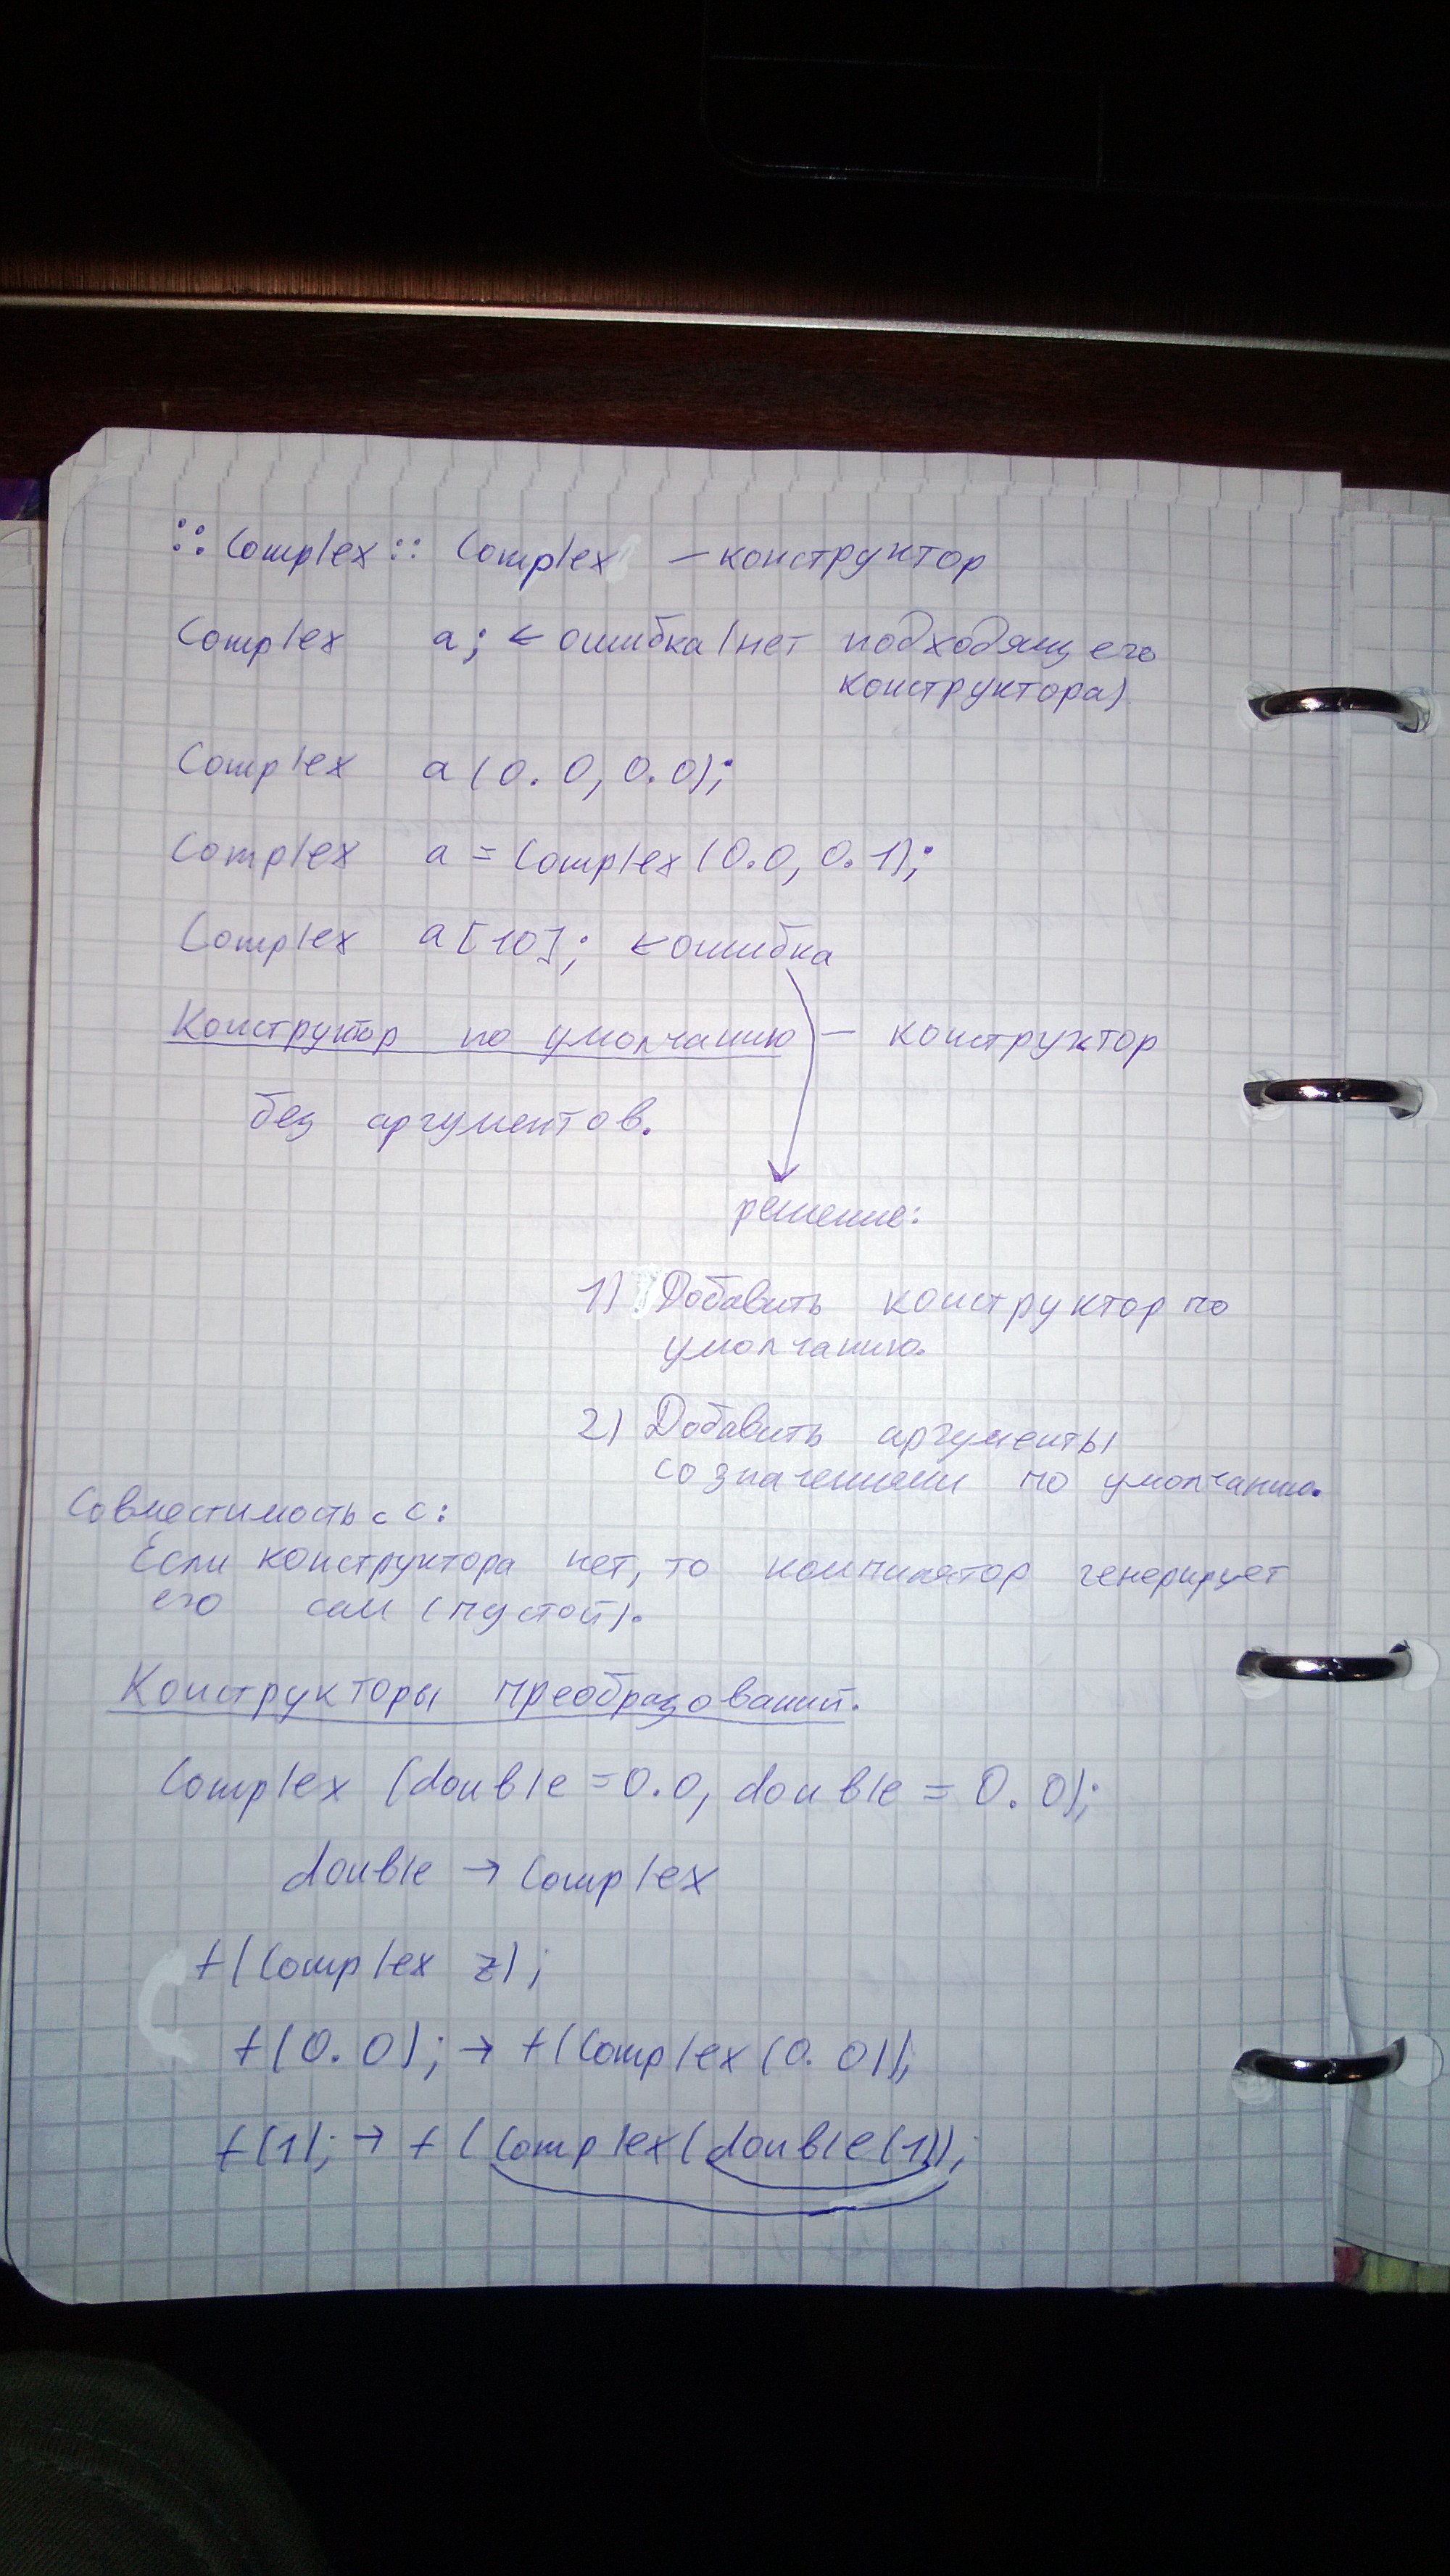 ::Complex::Complex — конструктор
Complex a; ← ошибка (нет подходящего
конструктора)
Complex a(0.0, 0.0);
Complex a = Complex(0.0, 0.1);
Complex a[10]; ← ошибка
Конструктор по умолчанию — конструктор
без аргументов.
решение:
1) Добавить конструктор по
умолчанию.
2) Добавить аргументы
со значениями по умолчанию.
Совместимость с C:
Если конструктора нет, то компилятор генерирует
его сам (пустой).
Конструкторы преобразований.
Complex (double = 0.0, double = 0.0);
double → Complex
f(Complex z);
f(0.0); → f(Complex(0.0));
f(1); → f(Complex(double(1));